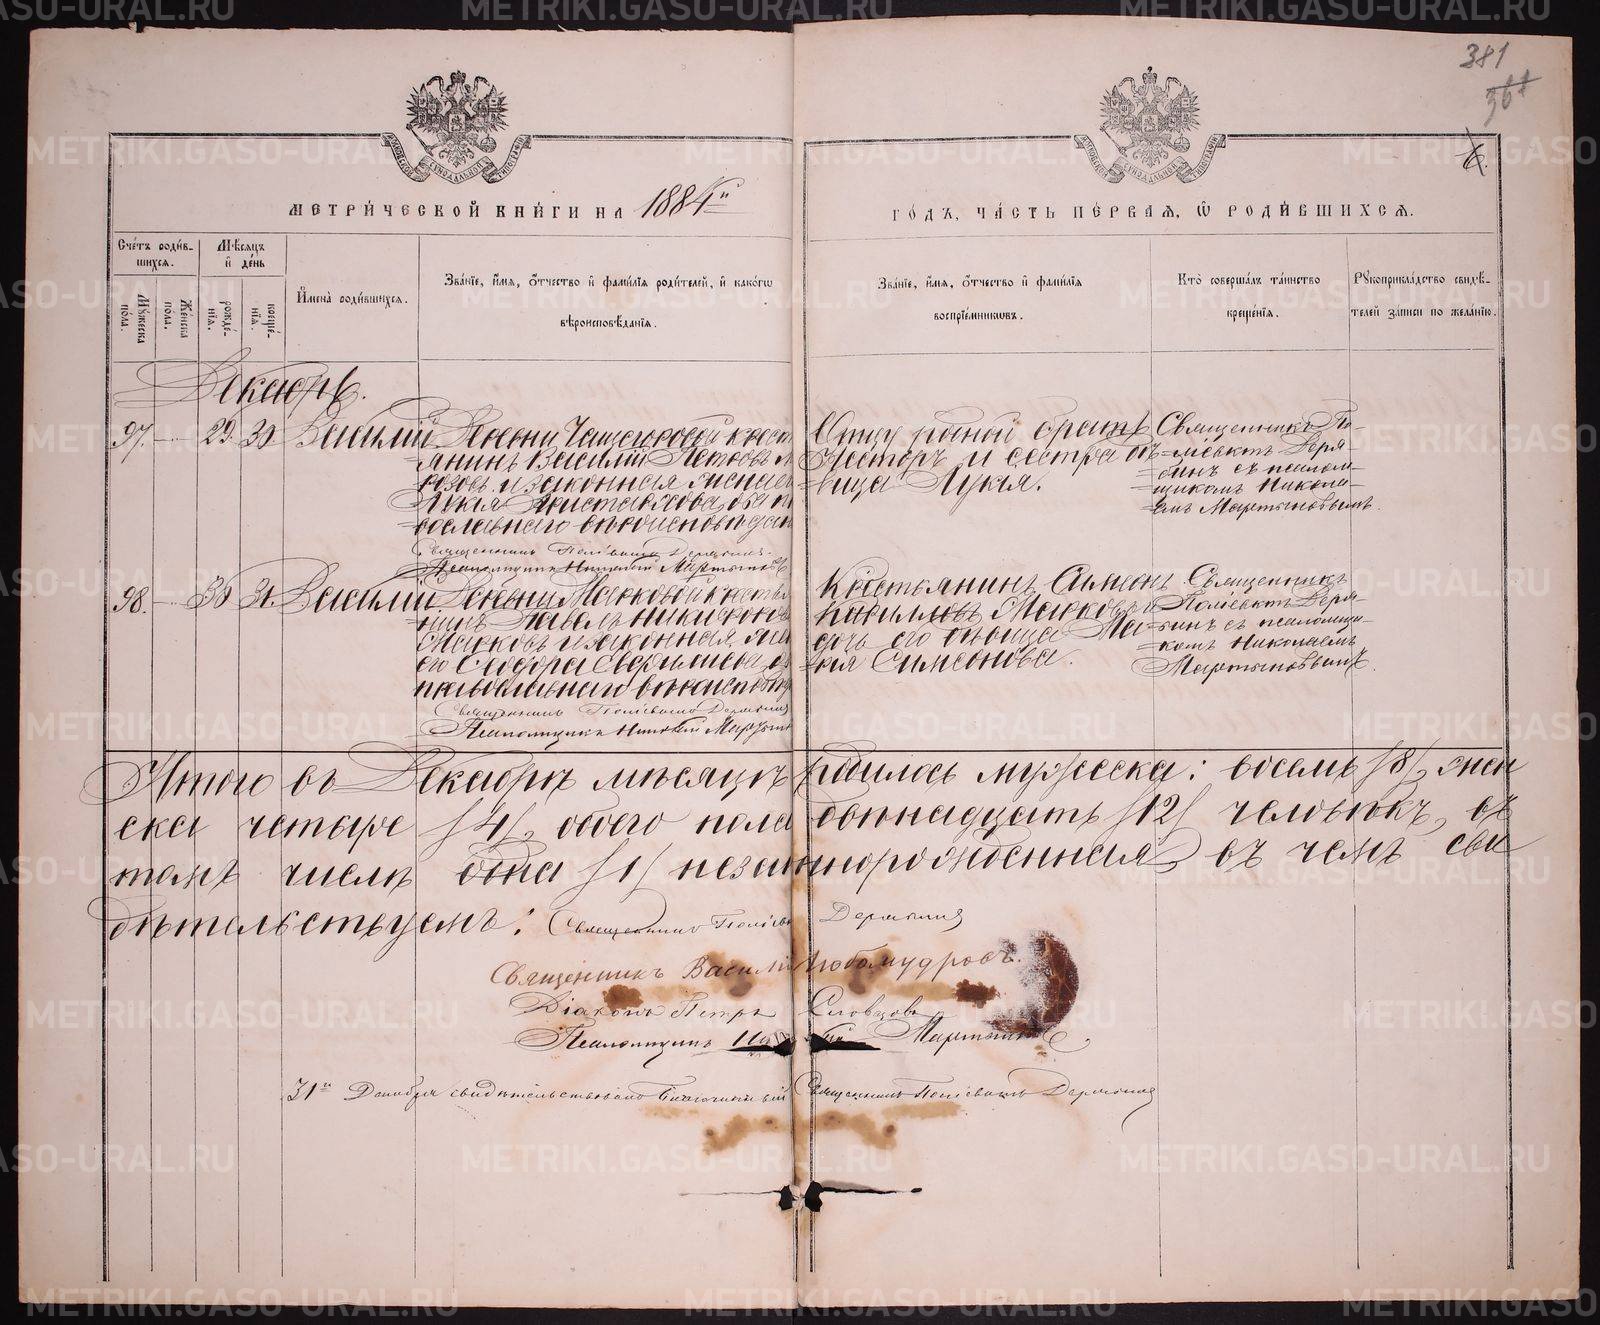 381
МЕТРИ́ЧЕСКОЙ КНИ́ГИ НА 1884й
ГО́ДЪ, ЧА́СТЬ ПЕ́РВАЯ, Ѡ РОДИ́ВШИХСЯ.
Сче́тъ роди́в-
шихся.
Мѣ́сяцъ
и҆ де́нь
Мꙋжеска
по́ла.
Же́нска
по́ла.
рожде́-
нїя.
креще́-
нїя.
И҆мена̀ роди́вшихся.
Зва́нїе, и҆́мя, ѻ҆́тчество и҆ фами́лїя роди́телей, и҆ како́гѡ
вѣроисповѣ́данїя.
Зва́нїе, и҆́мя, ѻ҆́тчество и҆ фами́лїя
воспрїе́мникѡвъ.
Кто̀ соверша́лъ та́инство
креще́нїя.
Рꙋкоприкла́дство свидѣ́-
телей за́писи по жела́нїю.
Декабрь.
97. — 29. 30 Василий
Деревни Чащегоровой кресть
янинъ Василий Петровъ М
розовъ и законная жена его
вославнаго вѣроисповѣдан
Священникъ Полиевктъ
Псаломщикъ Николай Мартыновъ
Отцу родной братъ
Несторъ и сестра дѣ-
вица Лукия.
Священникъ По-
лиевктъ Деря-
бинъ съ псалом-
щикомъ Никола-
емъ Мартыновымъ.
98. — 30 31. Василий
Деревни Масюковой кресть
нинъ Павелъ Никифоров
Масюковъ и законная же
православнаго вѣроисповѣд
Священникъ Полиевктъ
Псаломщикъ Николай Мартын
Крестьянинъ Симеонъ
Кирилловъ Масюковъ и
дочь его дѣвица Ма-
рия Симеонова.
Священникъ
Полиевктъ Деря-
бинъ съ псаломщи-
комъ Николаемъ
Мартыновымъ.
Итого въ Декабрѣ мѣсяцѣ родилось мужеска: восемь /8/, жен
ска четыре /4/, обоего пола двѣнадцать /12/ человѣкъ, въ
томъ числѣ одна /1/ незаконнорожденная, въ чемъ сви
дѣтельствуемъ: Священникъ Полиевктъ Дерябинъ
Священникъ Василий Любомудровъ.
Діаконъ Петръ Словцовъ
Псаломщикъ Мартыновъ.
31го Декабря свидѣтельствовалъ Благочинный Священникъ Полиевктъ Дерябинъ
METRIKI.GASO-URAL.RU